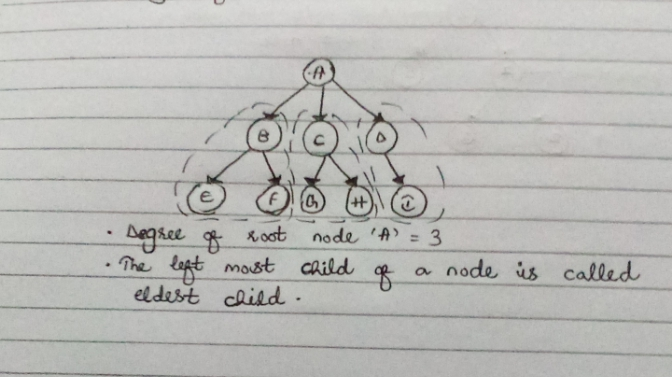 A
B C D
E F G H I
• Degree of root node 'A' = 3
• The left most child of a node is called
eldest child.